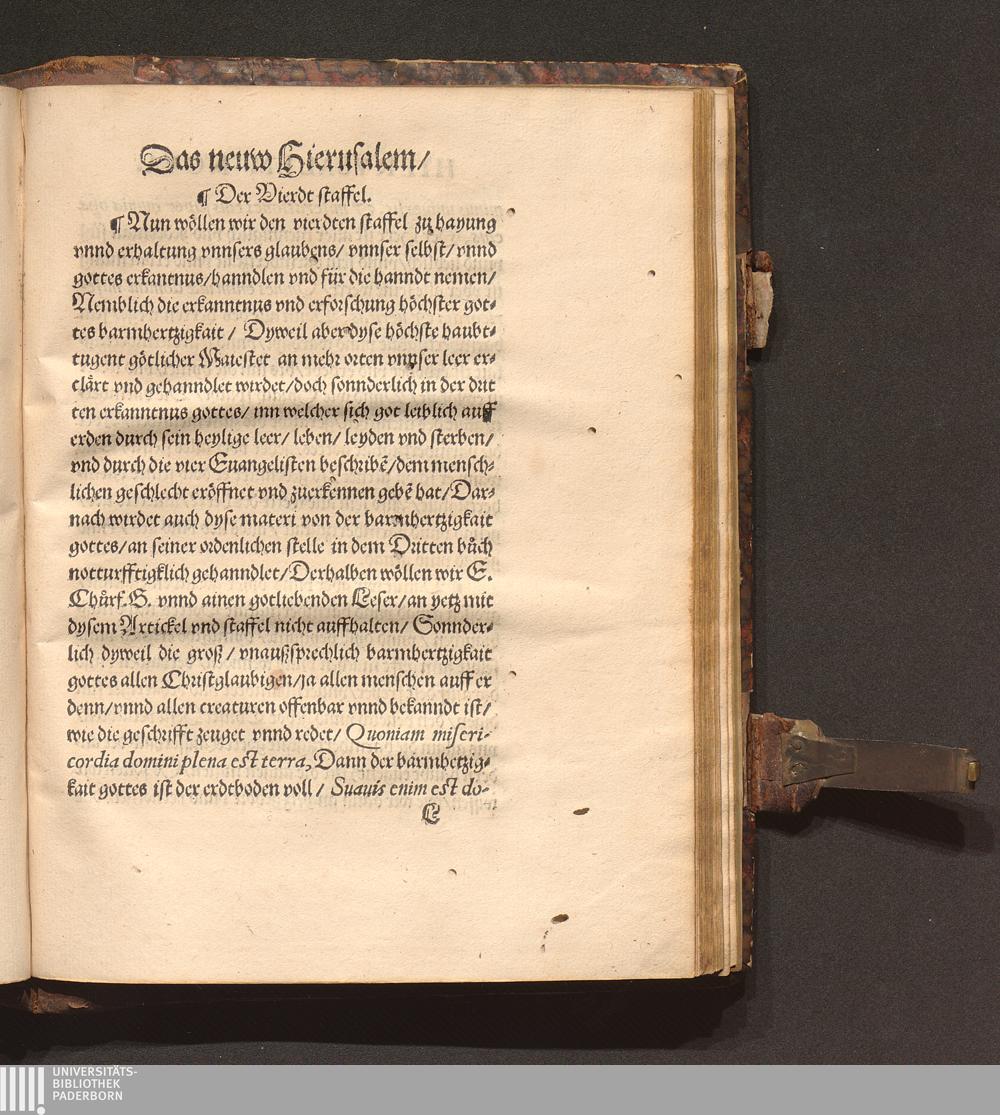 Das neuw Hierusalem/
¶ Der Vierdt staffel.
¶ Nun wöllen wir den vierdten staffel zu hayung
vnnd erhaltung vnnsers glaubens/ vnnser selbst/ vnnd
gottes erkantnus/ hanndlen vnd für die hanndt nemen/
Nemblich die erkanntnus vnd erforschung höchster got-
tes barmhertzigkait/ Dyweil aber dyse höchste haubt-
tugent götlicher Maiestet an mehr orten vnnser leer er-
clärt vnd gehanndlet wirdet/ doch sonnderlich in der drit
ten erkanntnus gottes/ inn welcher sich got leiblich auff
erden durch sein heylige leer/ leben/ leyden vnd sterben/
vnd durch die vier Euangelisten beschribē/ dem mensch-
lichen geschlecht eröffnet vnd zuerkennen gebē hat/ Dar-
nach wirdet auch dyse materi von der barmhertzigkait
gottes/ an seiner ordenlichen stelle in dem Dritten bůch
notturfftigklich gehanndlet/ Derhalben wöllen wir E.
Chůrf. G. vnnd ainen gotliebenden Leser/ an yetz mit
dysem Artickel vnd staffel nicht auffhalten/ Sonnder-
lich dyweil die groß/ vnaußsprechlich barmhertzigkait
gottes allen Christglaubigen/ ja allen menschen auff er
denn/ vnnd allen creaturen offenbar vnnd bekanndt ist/
wie die geschrifft zeuget vnnd redet/ Quoniam miseri-
cordia domini plena est terra, Dann der barmhetzig-
kait gottes ist der erdtboden voll/ Suauis enim est do-
L
UNIVERSITÄTS-
BIBLIOTHEK
PADERBORN